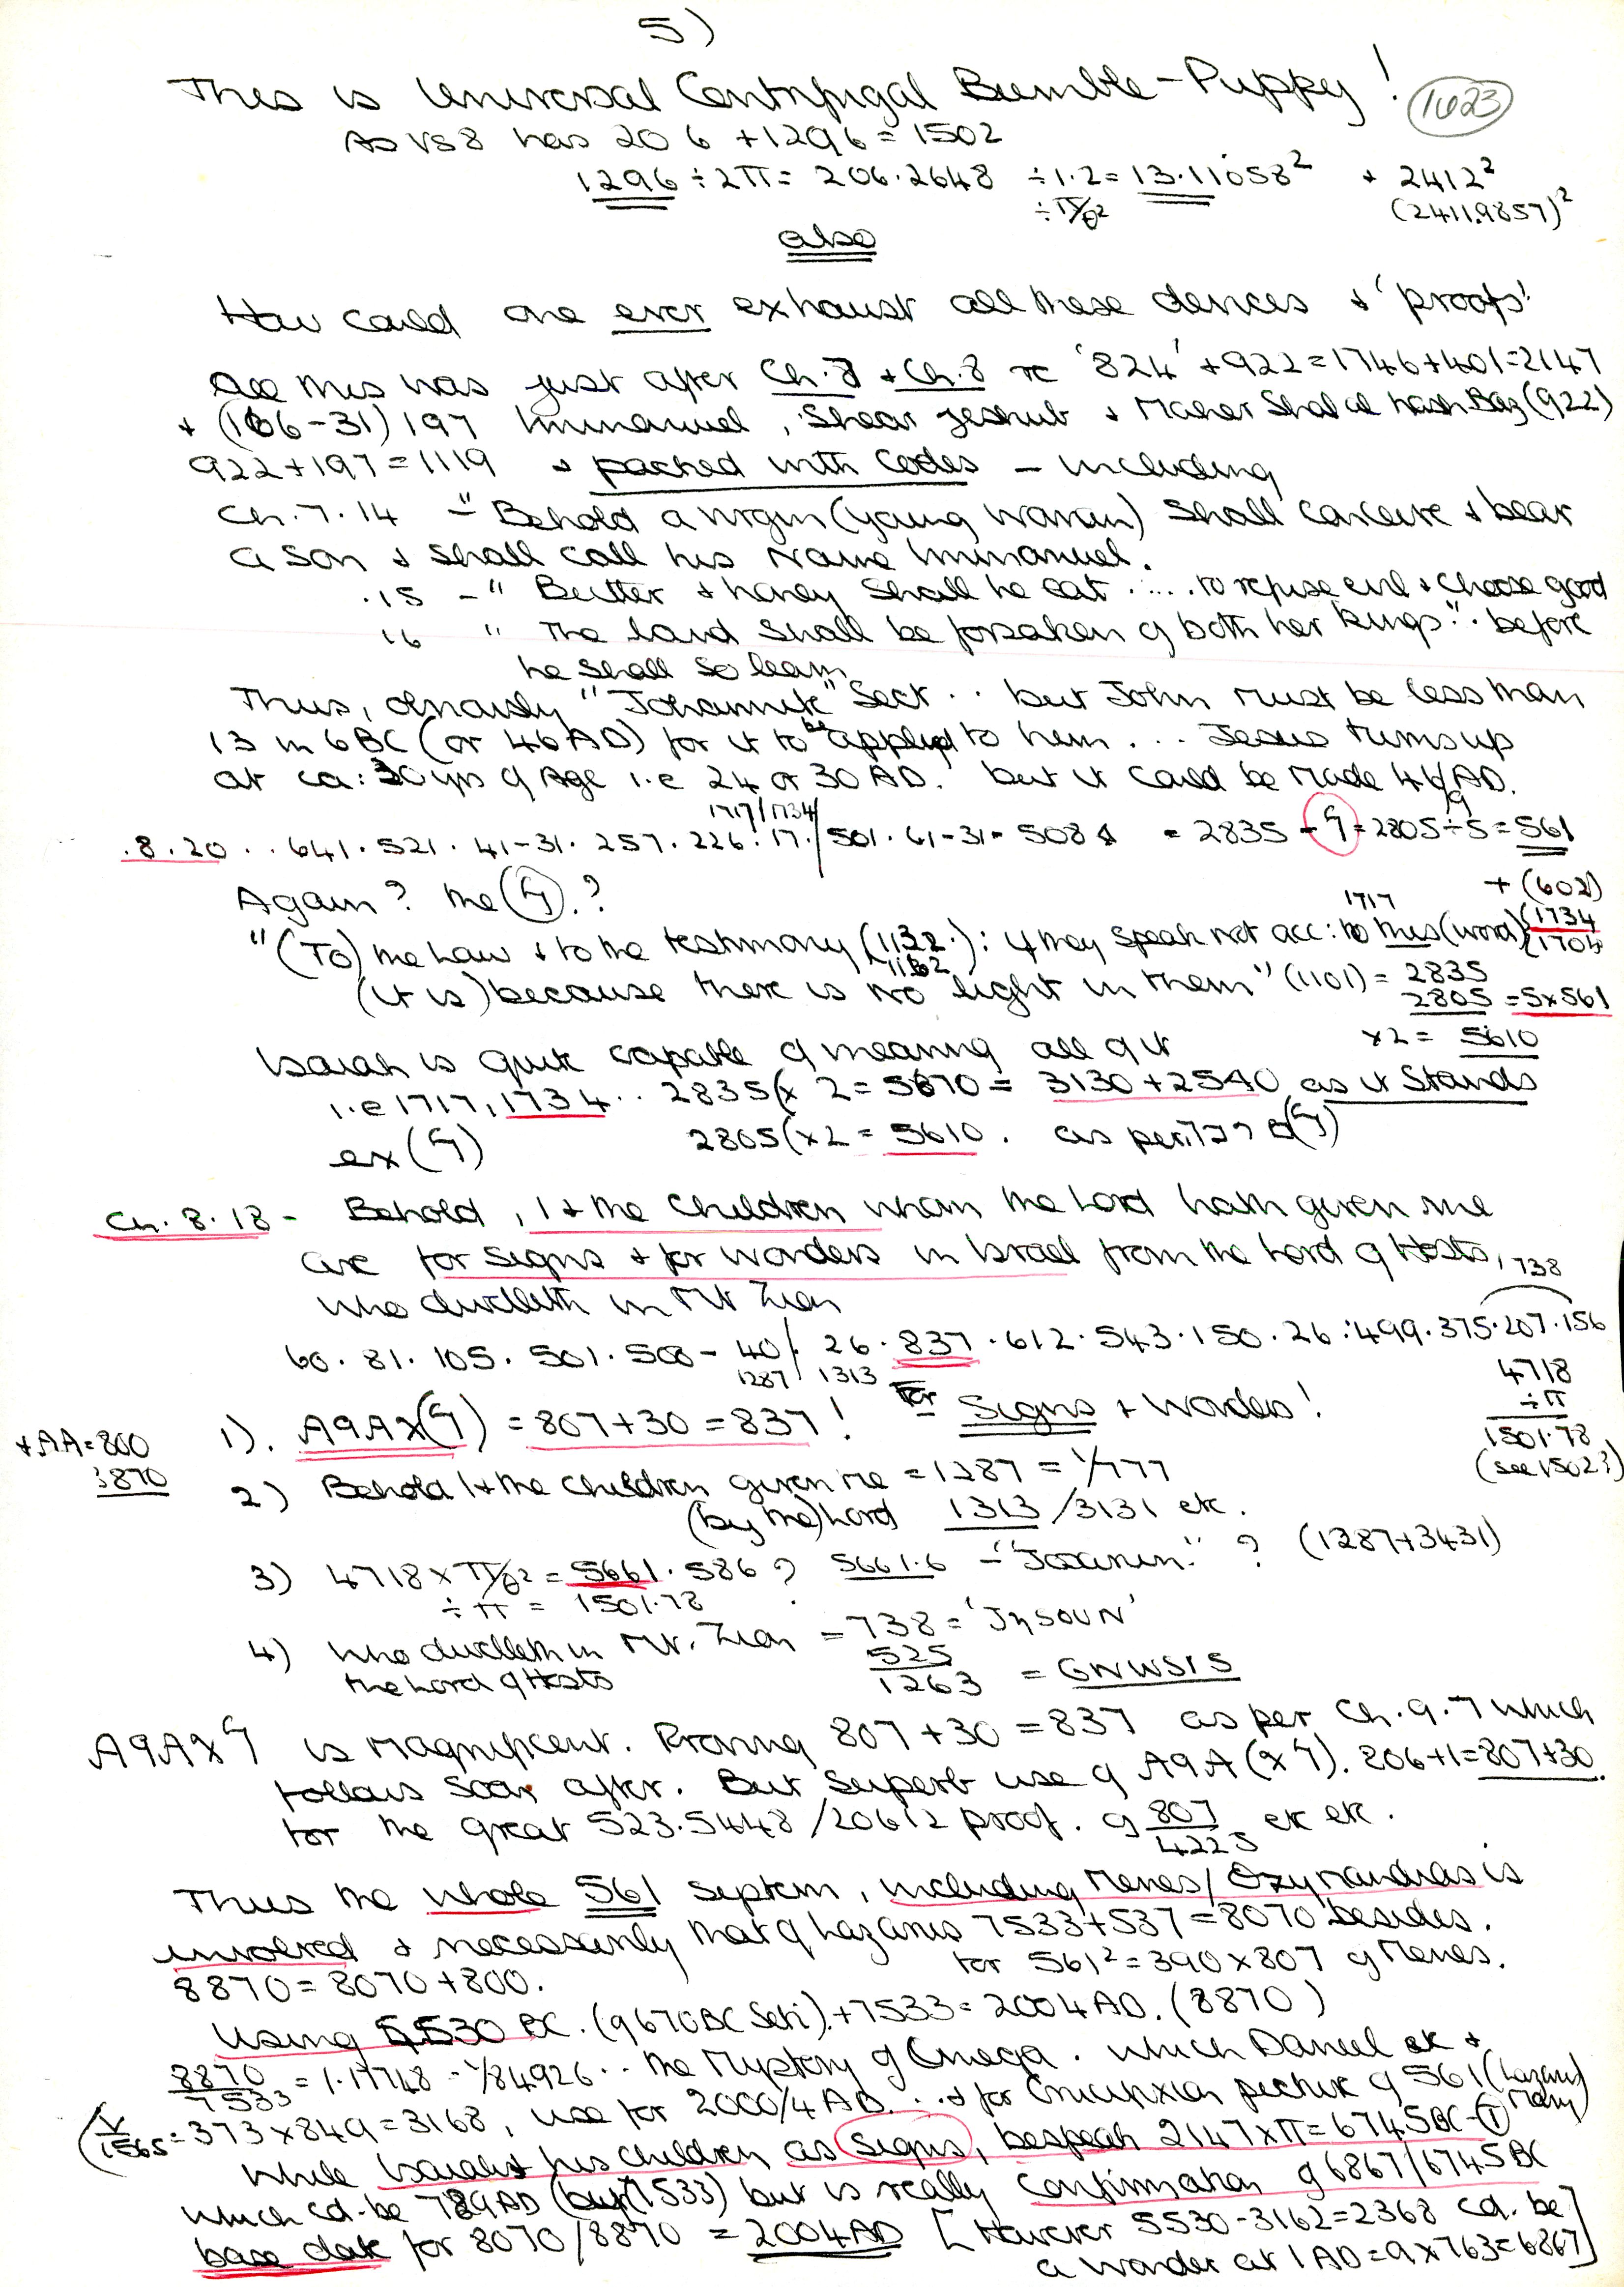 5)
This is Universal Centrifugal Bumble-Puppy!
1623
As vs 8 has 206 + 1296 = 1502
1296 ÷ 2π = 206.2648 ÷ 1.2 = 13.11058² + 2412²
(2411.9857)²
also
How could one ever exhaust all these devices + 'proofs'
All this was just after Ch.7 + Ch.8 re '824' + 922 = 1746 + 401 = 2147
+ (166-31) 197 Immanuel, Shear Jeshub + Maher Shalal hash Baz (922)
922 + 197 = 1119 + packed with codes - including
Ch.7.14 - "Behold a virgin (young woman) shall conceive + bear
a son + shall call his Name Immanuel.
.15 - " Butter + honey shall he eat ..... to refuse evil + choose good
16 " The land shall be forsaken of both her kings". before
he shall so learn
Thus, obviously "Johannite" Sect .. but John must be less than
13 in 6BC (or 46AD) for it to be applied to him ... Jesus turns up
at ca: 30 yrs of Age i.e 24 or 30 AD. but it could be made AD.
1717/1734
.8.20 .. 641. 521. 41-31. 257. 226. 17. / 501. 61-31- 508 = 2835 - = 2805 ÷ 5 = 561
+ (602)
Again? the .?
1717
"(To) the Law + to the testimony (1132.): if they speak not acc: to this (word) {1734
1162 {1704
(it is) because there is no light in them" (1101) = 2835
2805 = 5x561
x2 = 5610
Isaiah is quite capable of meaning all of it
i.e 1717, 1734 .. 2835 (x 2 = 5670 = 3130 + 2540 as it stands
ex 2805 (x2 = 5610. as per
Ch. 8. 18 - Behold, I + the Children whom the Lord hath given me
are for signs + for wonders in Israel from the Lord of Hosts,
who dwelleth in Mt Zion
738
60. 81. 105. 501. 500 - 40 / 26. 837. 612. 543. 150. 26: 499. 375. 207. 156
1287 / 1313
4718
÷ π
1501.78
(see 1502?)
1). A9AX = 807 + 30 = 837! For Signs + Wonders!
+ AA = 800
3870
2) Behold I + the Children given me = 1287 = 1/777
(by the) Lord 1313 / 3131 etc.
3) 4718 x = 5661.586? 5661.6 - ? (1287+3431)
÷ π = 1501.78
4) who dwelleth in Mt. Zion = 738 = 'JhSOUN'
the Lord of Hosts 525
1263 = GNWSIS
A9AX is Magnificent. Proving 807 + 30 = 837 as per Ch. 9. 7 which
follows soon after. But superb use of A9A. 806 + 1 = 807 + 30
for the great 523.5448 / 20612 proof. of 807/4225 etc etc.
Thus the whole 561 system, including Menes / Ozymandias is
involved + necessarily that of Lazarus 7533 + 537 = 8070 besides.
for 561² = 390 x 807 of Menes.
8870 = 8070 + 800.
Using 5530 BC. (9670BC Seti) + 7533 = 2004 AD. (8870)
8870/7533 = 1.17748 - 1/84926 .. the Mystery of Omega. which Daniel etc +
1/1565 = 373 x 849 = 3168, use for 2000/4 AD. .. + for Crucifixion picture of 561 (Lazarus) Mary
While Isaiah + his children as signs, bespeak 2147 x π = 6745BC
which cd. be 789AD (by 7533) but is really confirmation of 6867/6745BC
base date for 8070/8870 = 2004AD [However 5530 - 3162 = 2368 cd. be
a wonder at 1AD = 9 x 763 = 6867]